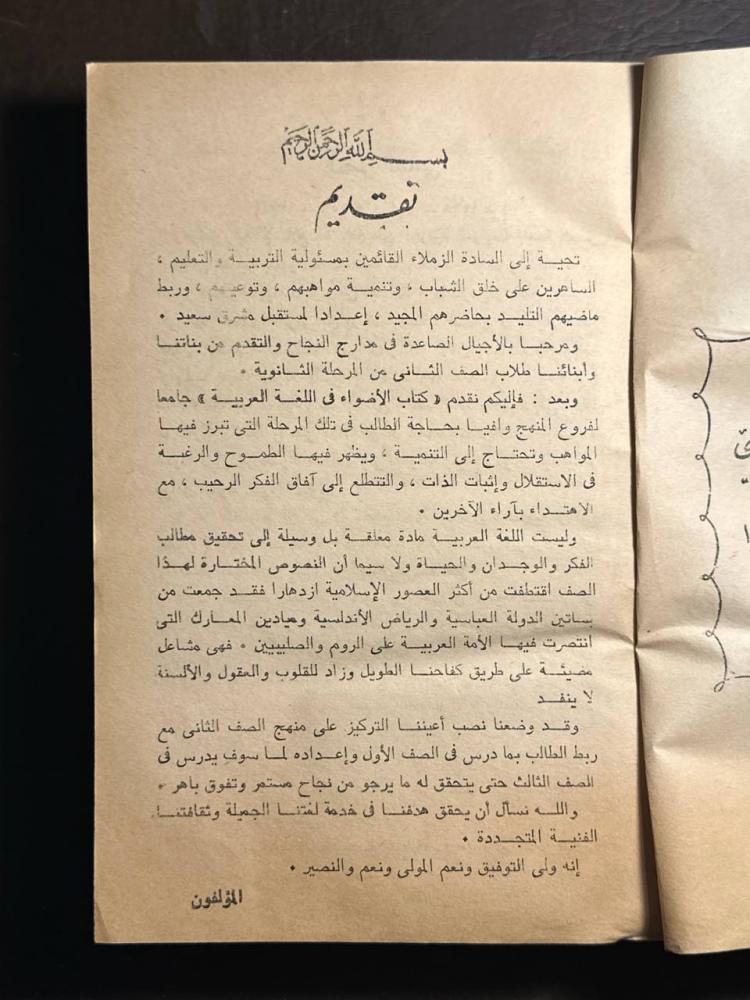 بسم الله الرحمن الرحيم
تقديم
تحيـــة إلى السادة الزملاء القائمين بمسئولية التربيـــة والتعليم ،
الساهرين على خلق الشباب ، وتنميـــة مواهبهم ، وتوعيتهم ، وربط
ماضيهم التليـــد بحاضرهم المجيد ، إعـــدادا لمستقبل مشرق سعيد .
ومرحبـــا بالأجيال الصاعدة فى مدارج النجاح والتقدم من بناتنـــا
وأبنائنـــا طلاب الصف الثـــانى من المرحلة الثـــانوية .
وبعد : فإليكم نقدم « كتاب الأضواء فى اللغة العربيـــة » جامعا
لفروع المنهج وافيـــا بحـــاجة الطالب فى تلك المرحلة التى تبرز فيهـــا
المواهب وتحتـــاج إلى التنميـــة ، ويظهر فيهـــا الطمـــوح والرغبـــة
فى الاستقلال وإثبات الذات ، والتتطلع إلى آفاق الفكر الرحيب ، مع
الاهتـــداء بـآراء الآخرين .
وليست اللغة العربيـــة مادة مغلقـــة بل وسيلة إلى تحقيق مطالب
الفكر والوجـــدان والحيـــاة ولا سيما أن النصوص المختـــارة لهـــذا
الصف اقتطفت من أكثر العصور الإسلامية ازدهارا فقـــد جمعت من
بساتين الدولة العباسية والرياض الأندلسية وميادين المعـــارك التى
انتصرت فيهـــا الأمة العربيـــة على الروم والصليبيين . فهى مشاعل
مضيئـــة على طريق كفاحنـــا الطويل وزاد للقلوب والعقول والألسنة
لا ينفـــد
وقـــد وضعنا نصب أعيننـــا التركيز على منهج الصف الثانى مع
ربط الطالب بما درس فى الصف الأول وإعـــداده لمـــا سوف يدرس فى
الصف الثالث حتى يتحقق له ما يرجو من نجاح مستمر وتفوق باهر .
واللـــه نسأل أن يحقق هدفنـــا فى خدمة لغتنـــا الجميلة وثقافتنـــا
الفنية المتجـــددة .
إنه ولى التوفيق ونعم المولى ونعم والنصير .
المؤلفون